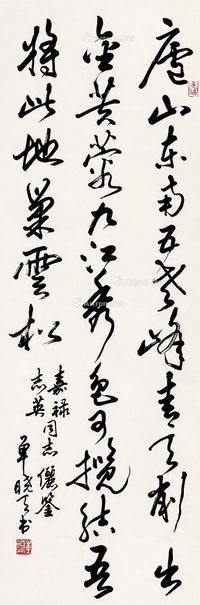 廬山东南五老峰青天削出
金芙蓉九江秀色可攬结吾
将此地巢雲松
嘉禄
志英同志儷鑒
单晓天书